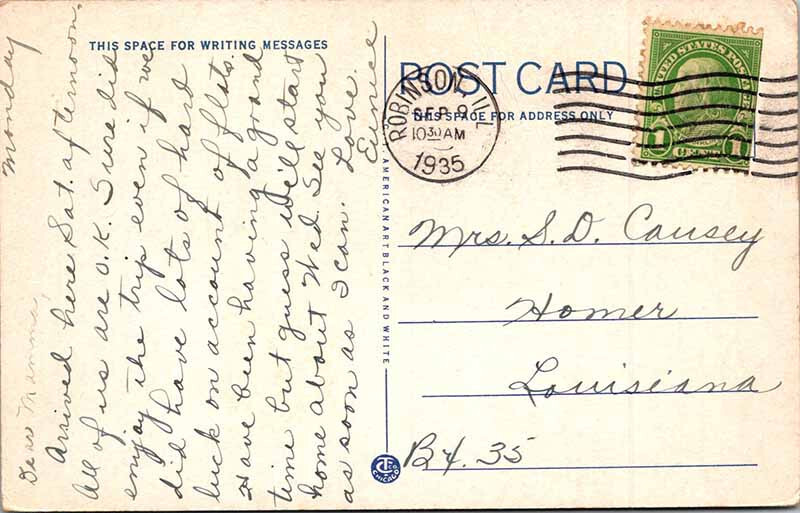 THIS SPACE FOR WRITING MESSAGES
Monday
Dear Mamma,
Arrived here Sat. afternoon,
All of us are O.K. Sure did
enjoy the trip even if we
did have lots of hard
luck on account of flats.
Have been having a grand
time but guess we'll start
home about Wed. See you
as soon as I can. Love.
Eunice
POST CARD
THIS SPACE FOR ADDRESS ONLY
ROBINSON, ILL
SEP 9
10 30 AM
1935
UNITED STATES POSTAGE
1 CENT 1
Mrs. S. D. Causey
Homer
Louisiana
Bx. 35
AMERICAN ART BLACK AND WHITE
CHICAGO